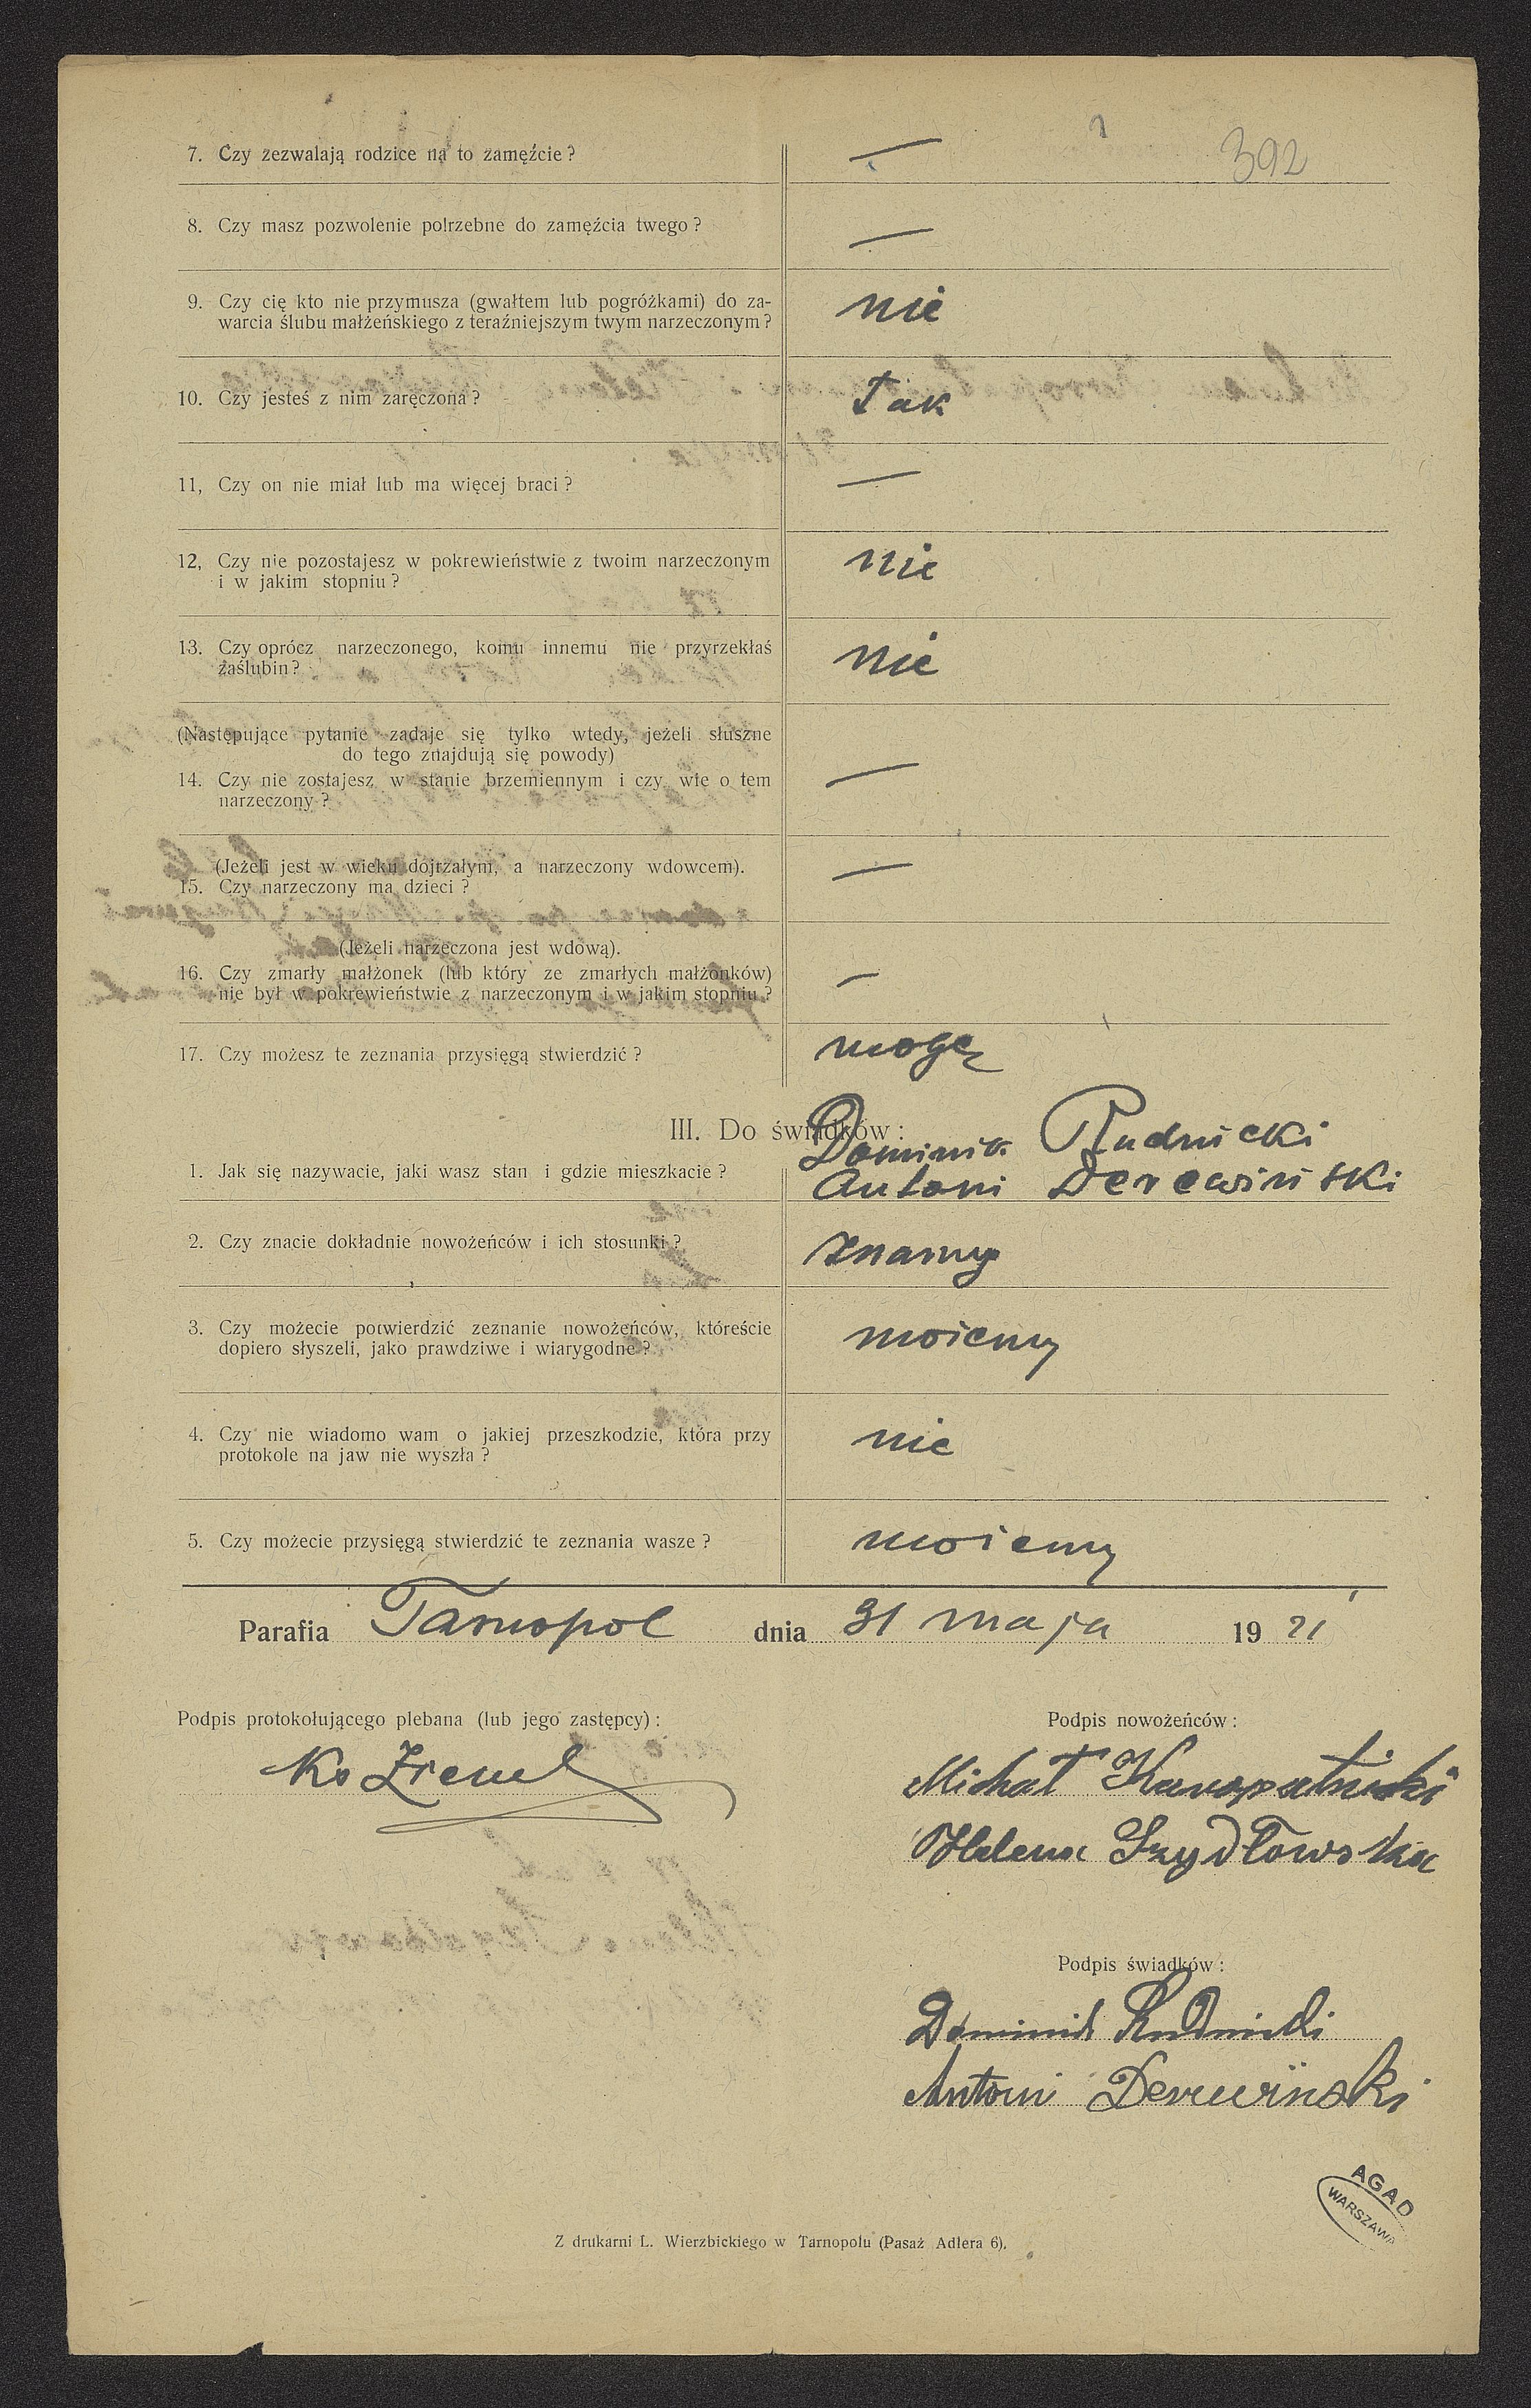 392
7. Czy zezwalają rodzice na to zamęźcie? —
8. Czy masz pozwolenie potrzebne do zamęźcia twego? —
9. Czy cię kto nie przymusza (gwałtem lub pogróżkami) do za-
warcia ślubu małżeńskiego z teraźniejszym twym narzeczonym? nie
10. Czy jesteś z nim zaręczona? Tak
11, Czy on nie miał lub ma więcej braci? —
12, Czy nie pozostajesz w pokrewieństwie z twoim narzeczonym
i w jakim stopniu? nie
13. Czy oprócz narzeczonego, komu innemu nie przyrzekłaś
zaślubin? nie
(Następujące pytanie zadaje się tylko wtedy, jeżeli słuszne
do tego znajdują się powody)
14. Czy nie zostajesz w stanie brzemiennym i czy wie o tem
narzeczony? —
(Jeżeli jest w wieku dojrzałym, a narzeczony wdowcem).
15. Czy narzeczony ma dzieci? —
(Jeżeli narzeczona jest wdową).
16. Czy zmarły małżonek (lub który ze zmarłych małżonków)
nie był w pokrewieństwie z narzeczonym i w jakim stopniu? —
17. Czy możesz te zeznania przysięgą stwierdzić? mogę
III. Do świadków:
Dominik Rudnicki
1. Jak się nazywacie, jaki wasz stan i gdzie mieszkacie? Antoni Derewiński
2. Czy znacie dokładnie nowożeńców i ich stosunki? znamy
3. Czy możecie potwierdzić zeznanie nowożeńców, któreście
dopiero słyszeli, jako prawdziwe i wiarygodne? możemy
4. Czy nie wiadomo wam o jakiej przeszkodzie, która przy
protokole na jaw nie wyszła? nie
5. Czy możecie przysięgą stwierdzić te zeznania wasze? możemy
Parafia Tarnopol dnia 31 maja 19 21
Podpis protokołującego plebana (lub jego zastępcy): Podpis nowożeńców:
Michał
Helena Szydłowska
Podpis świadków:
Dominik Rudnicki
Antoni Derewiński
AGAD
WARSZAWA
Z drukarni L. Wierzbickiego w Tarnopolu (Pasaż Adlera 6).